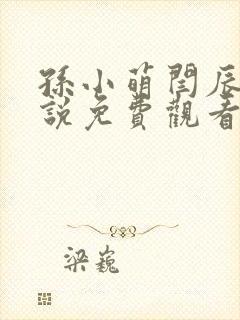 孫小萌閆辰
說免費觀看
梁巍